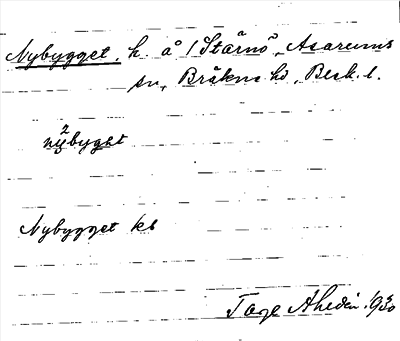 Nybygget, h. å /Stärnö, Asarums
sn, Bräkne hd, Blek. l.
2
nybyget
Nybygget kb
Tage Ahldén 1930